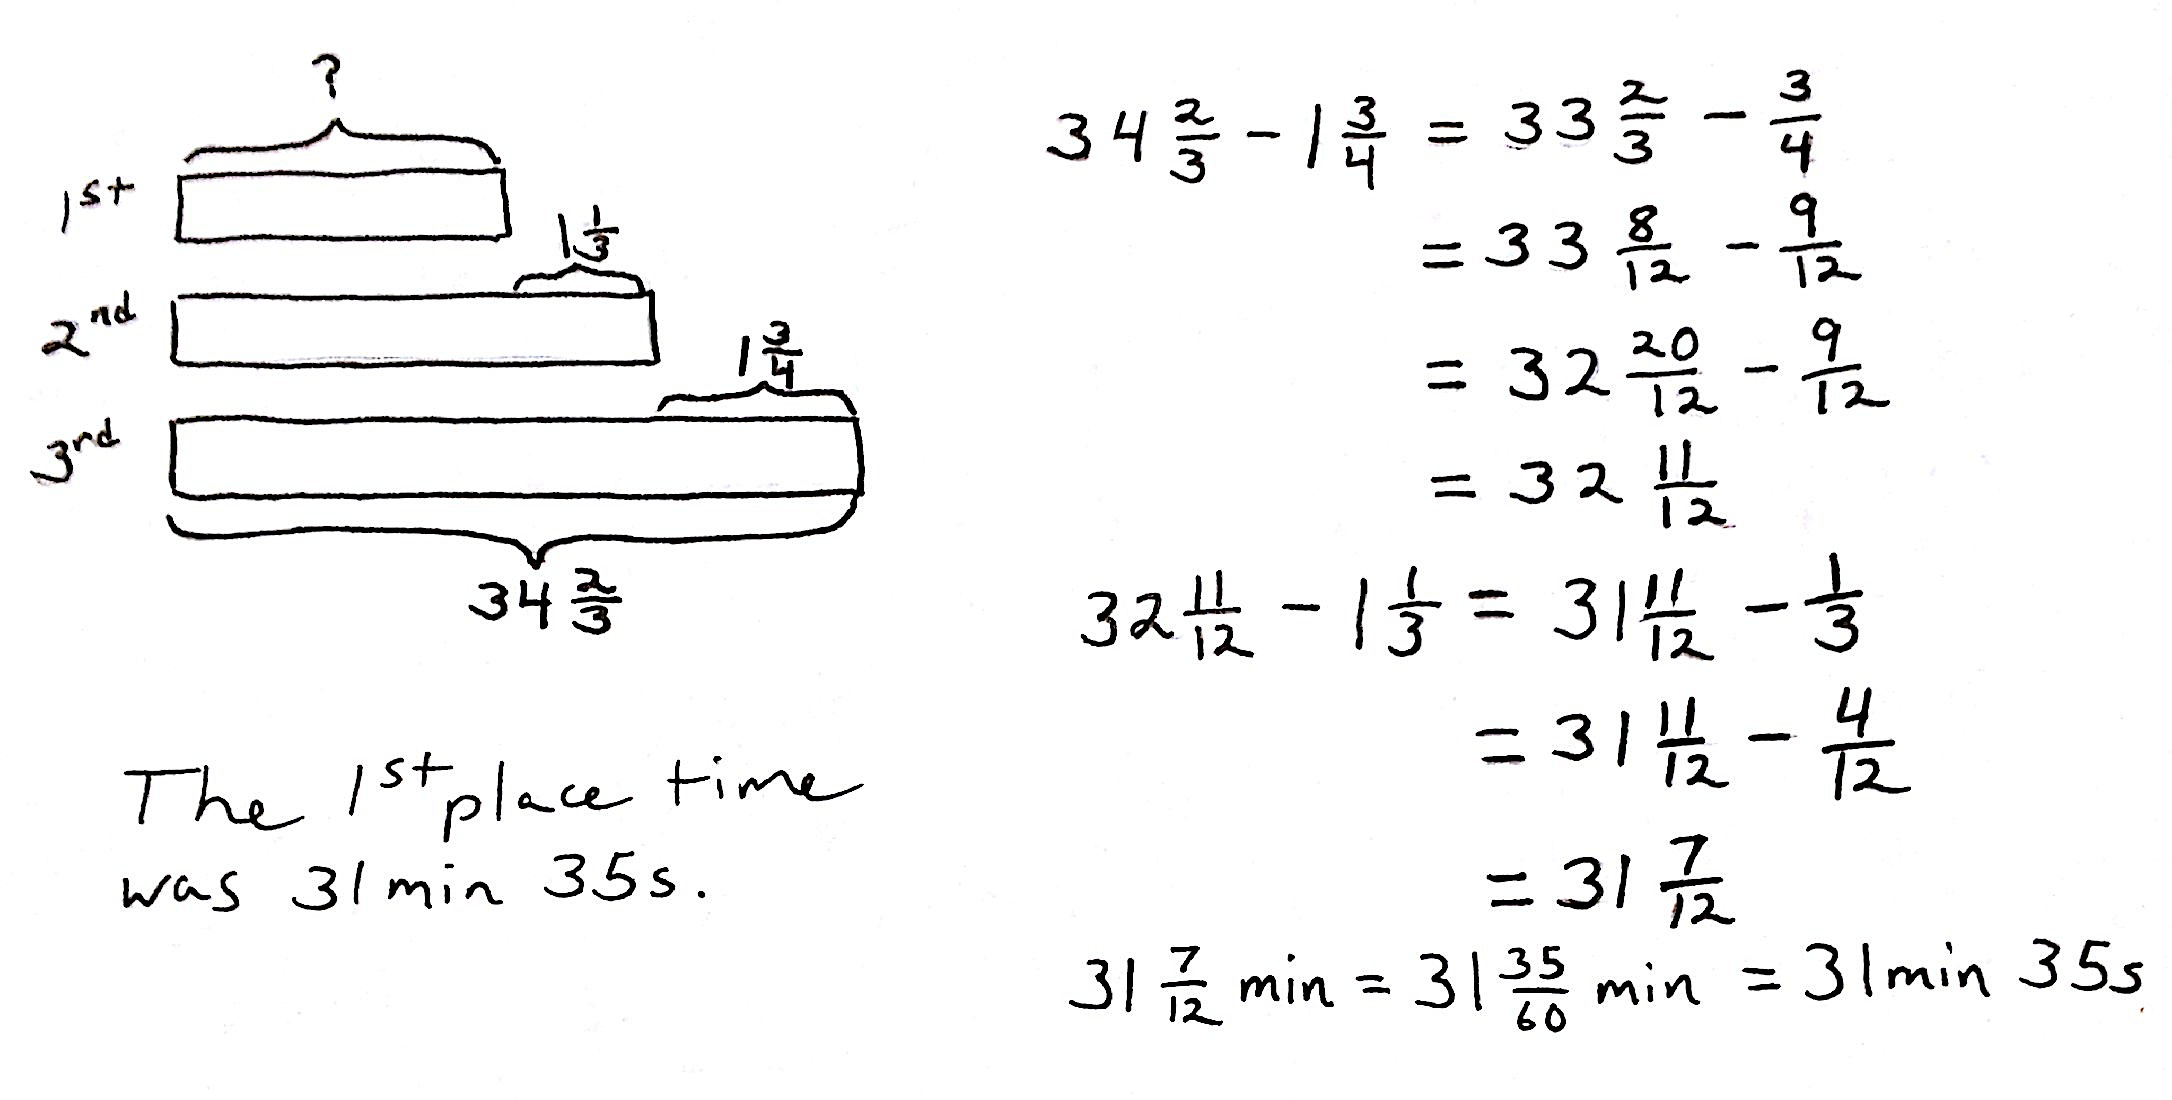 ?
1st
1 1/3
2nd
1 3/4
3rd
34 2/3
The 1st place time
was 31 min 35s.
34 2/3 - 1 3/4 = 33 2/3 - 3/4
= 33 8/12 - 9/12
= 32 20/12 - 9/12
= 32 11/12
32 11/12 - 1 1/3 = 31 11/12 - 1/3
= 31 11/12 - 4/12
= 31 7/12
31 7/12 min = 31 35/60 min = 31 min 35s